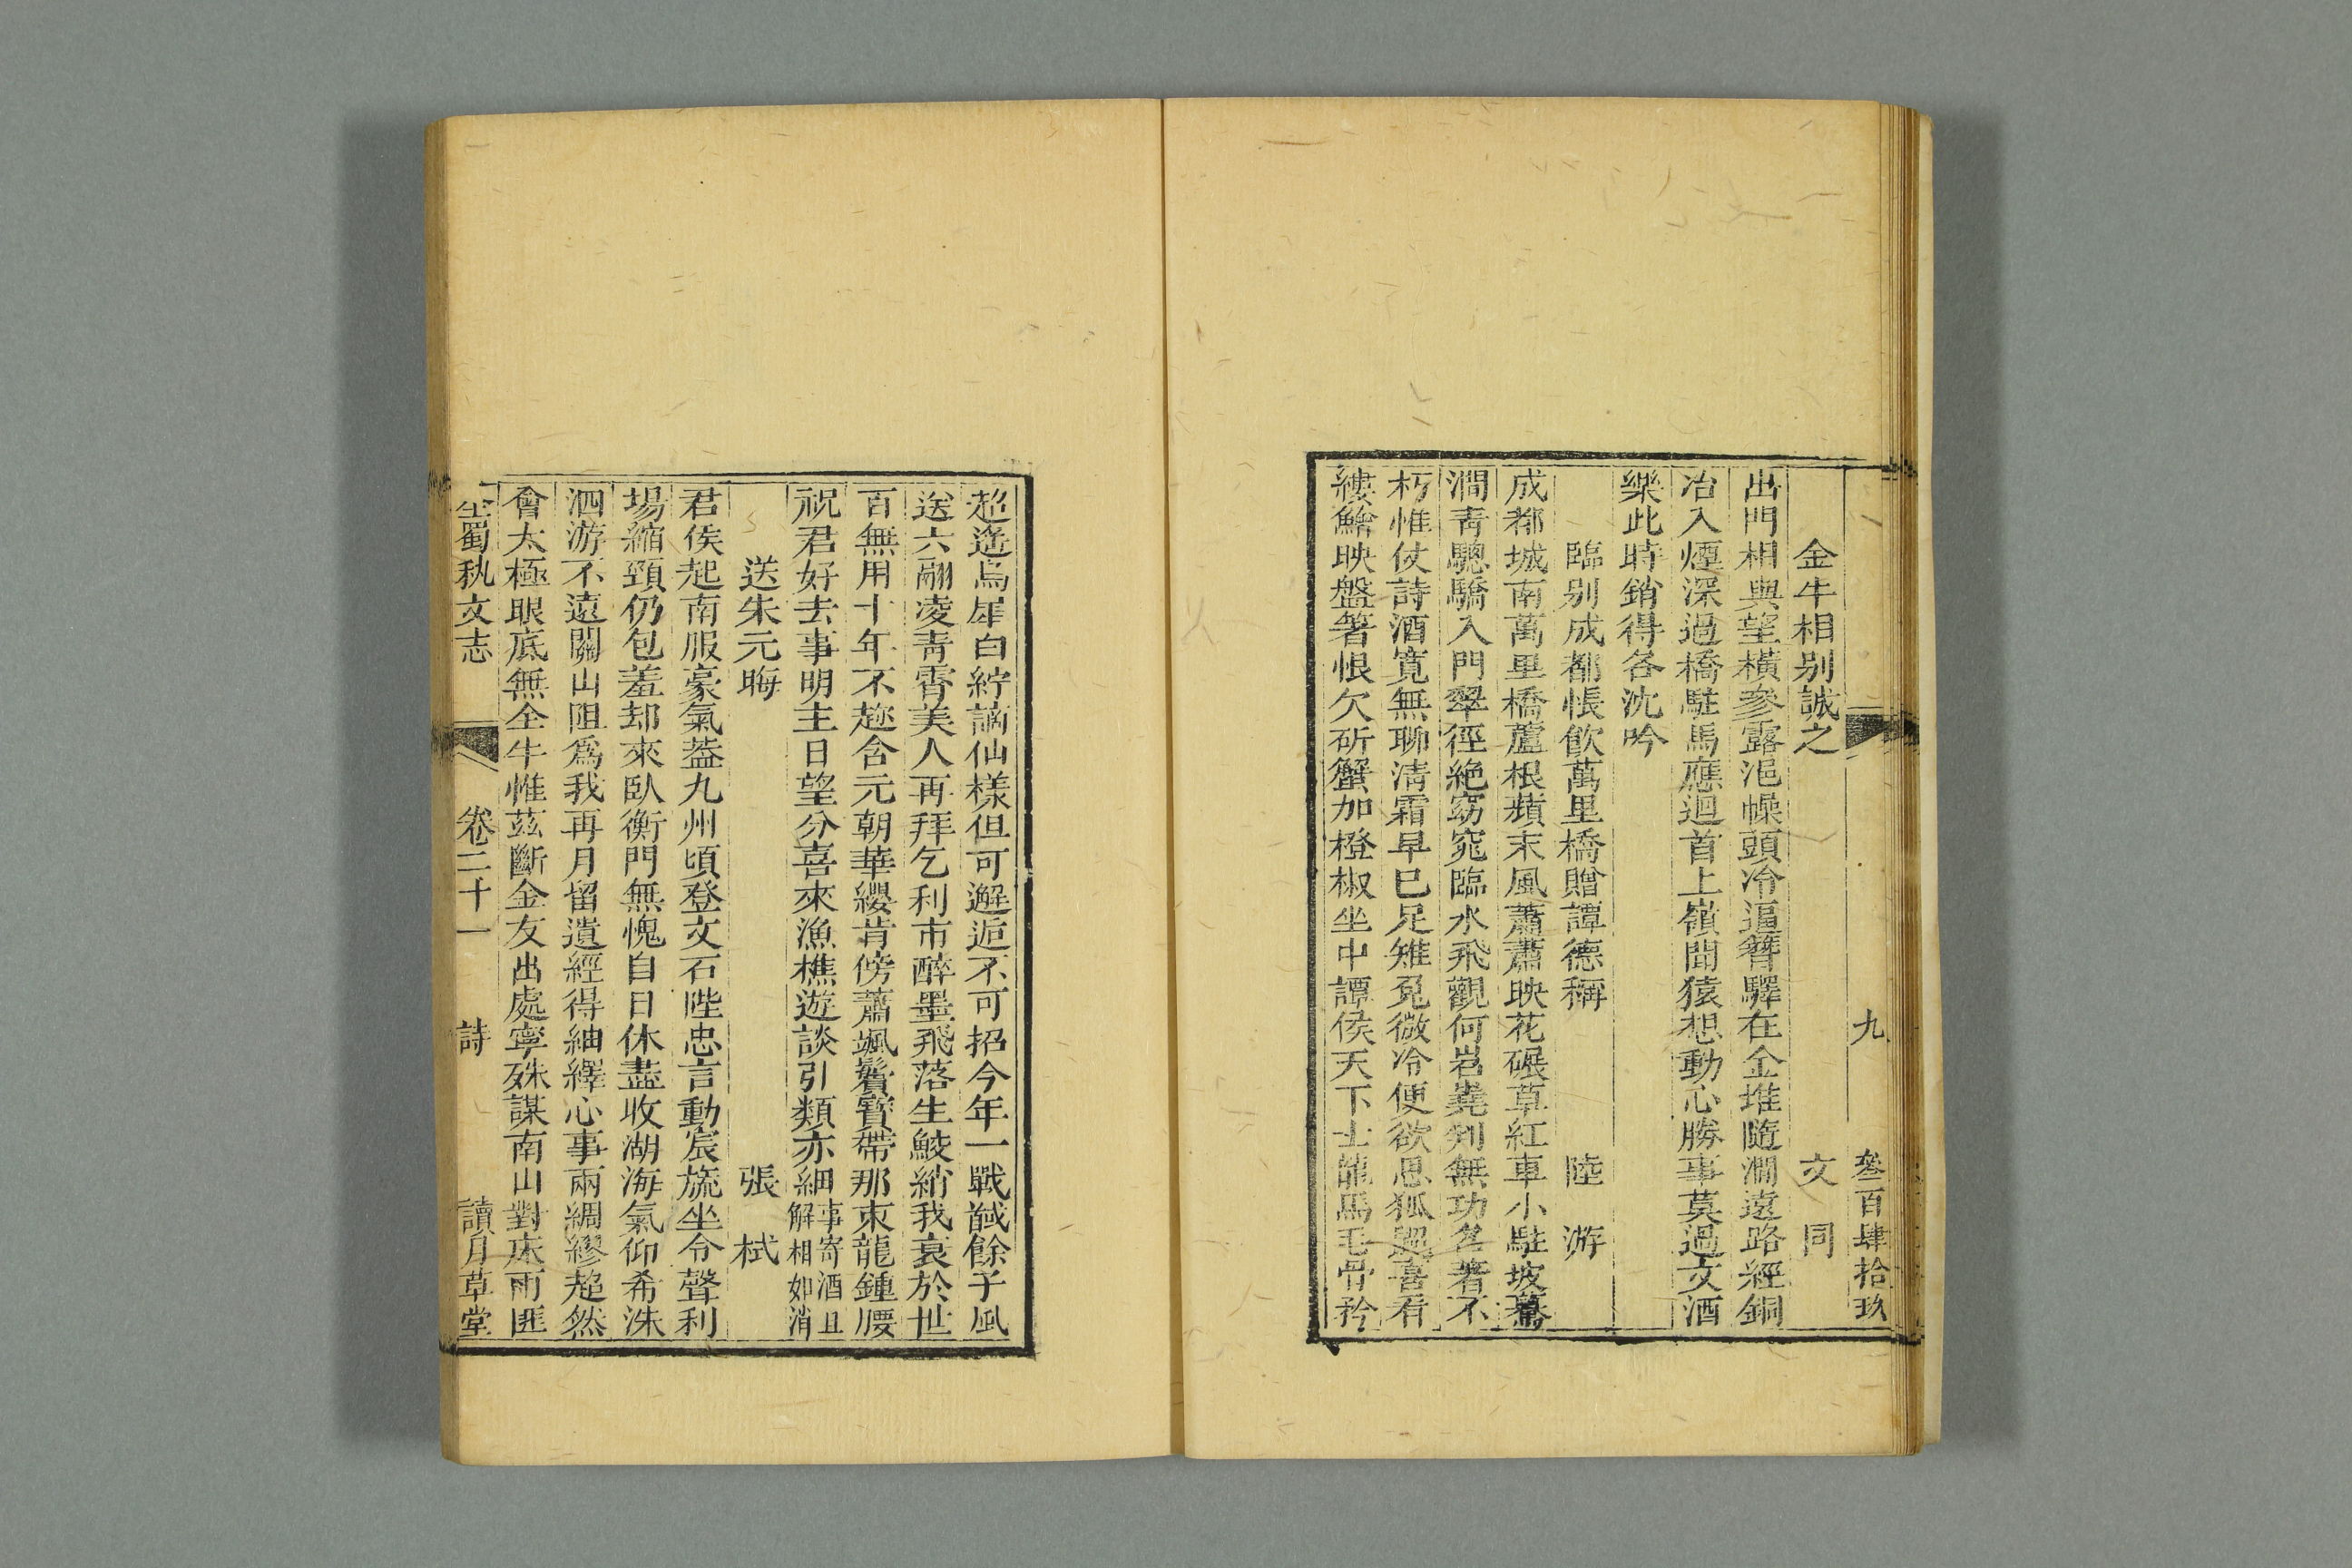 九 叄百肆拾玖
金牛相別誠之 文同
出門相與望橫參露浥幧頭冷逼簪驛在金堆隨澗遠路經銅
冶入煙深過橋駐馬應迴首上嶺聞猿想動心勝事莫過文酒
樂此時銷得各沈吟
臨別成都悵飲萬里橋贈譚德稱 陸游
成都城南萬里橋蘆根蘋末風蕭蕭映花碾草紅車小駐坡驀
澗青驄驕入門翠徑絕窈窕臨水飛觀何岧嶤判無功名著不
朽惟仗詩酒寬無聊清霜早已足雉兔微冷便欲思狐貂喜看
縷鱠映盤箸恨欠斫蟹加橙椒坐中譚侯天下士龍馬毛骨矜
超遙烏犀白紵謫仙樣但可邂逅不可招今年一戰馘餘子風
送六翮凌青霄美人再拜乞利市醉墨飛落生鮫綃我衰於世
百無用十年不趂含元朝華纓肯傍蕭颯鬢寶帶那束龍鍾腰
祝君好去事明主日望分喜來漁樵遊談引類亦細事寄酒且解相如消
送朱元晦 張栻
君侯起南服豪氣葢九州頃登文石陛忠言動宸旒坐令聲利
場縮頸仍包羞却來臥衡門無愧自日休盡收湖海氣仰希洙
泗游不遠關山阻爲我再月畱遺經得紬繹心事兩綢繆超然
會太極眼底無全牛惟茲斷金友出處寧殊謀南山對床雨匪
全蜀秇文志 卷二十一 詩 讀月草堂